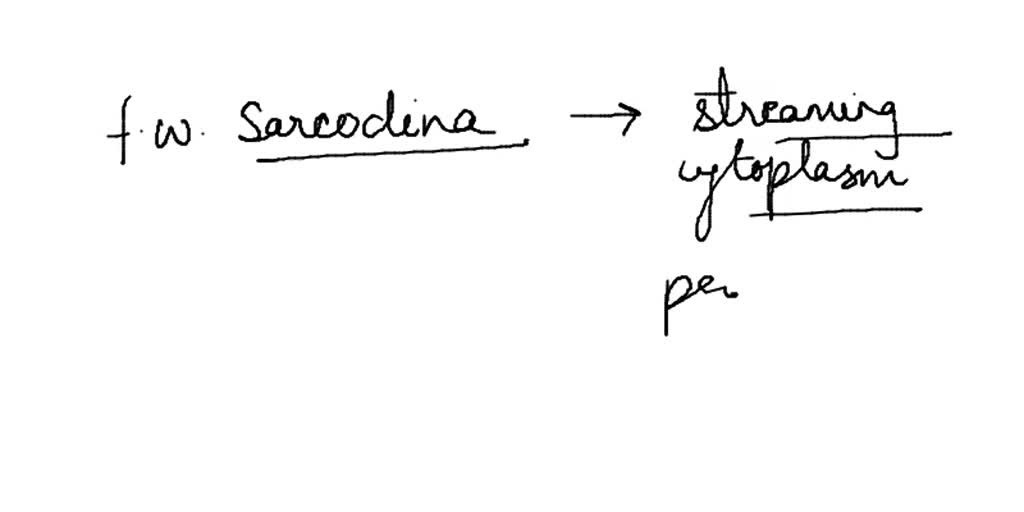 f.w. Sarcodina → streaming
cytoplasm
pe